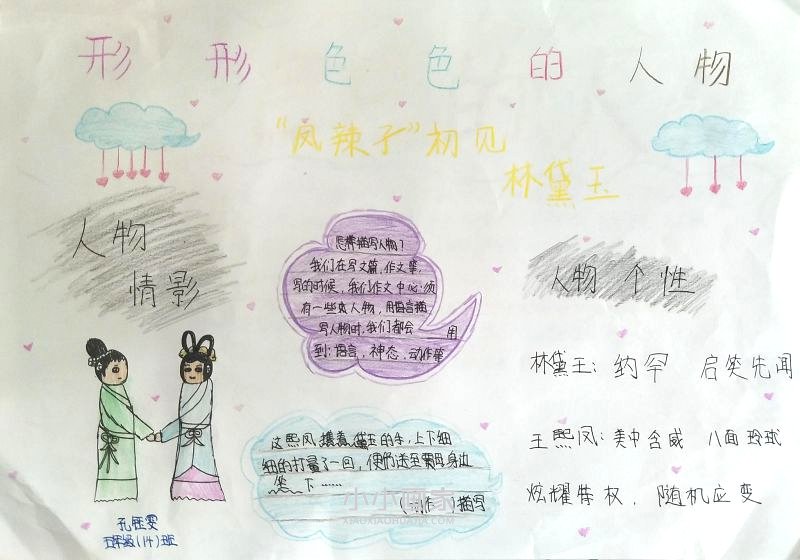 形形色色的人物
"凤辣子"初见
林黛玉
人物
情影
怎样描写人物？
我们在写文篇,作文集,
写的时候,我们作文中心须
有一些点人物,用语言描
写人物时,我们都会 用
到:语言,神态,动作集
人物 个性
林黛玉: 约罕 启笑先闻
王熙凤: 美中含威 八面玲珑
炫耀特权, 随机应变
这熙凤携着黛玉的手,上下细
细的打量了一回,便仍送至贾母身边
坐下……
(动作)描写
小小画家
XIAOXIAOHUAJIA.COM
孔钰雯
五年级(14)班